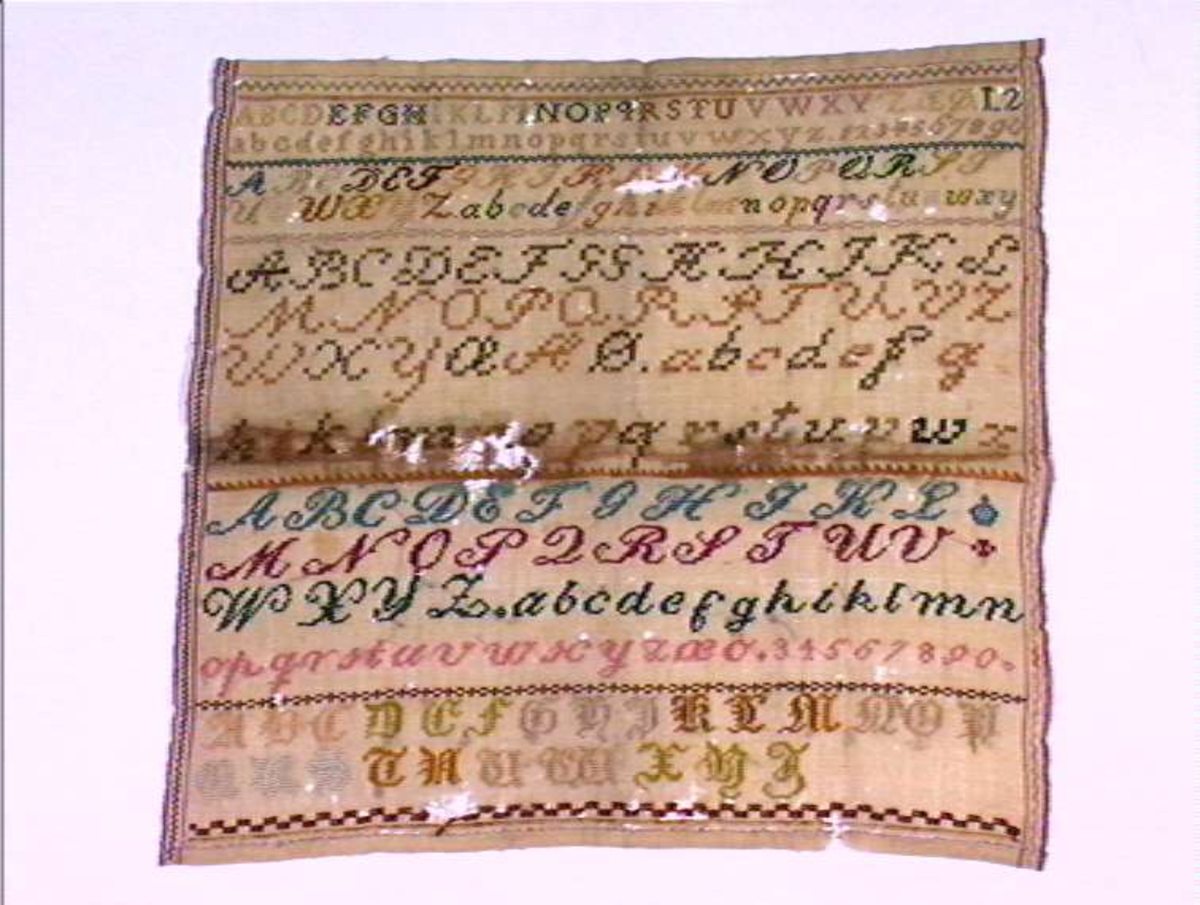 ABCDEFGHIKLMNOPQRSTUVWXYZÆØ 12
abcdefghiklmnopqrstuvwxyz.1234567890
ABCDEFGHIK NOPQRST
U WXYZabcdefghiklmnopqrstu wxy
ABCDEFGGHHIKL
MNOPQ.RSTUVZ
WXYÆAØ.abcdefg
k m pqrstuvwx
ABCDEFGHIKL
MNOPQRSTUV
WXYZ.abcdefghiklmn
opqrstuvwxyzæø.34567890.
ABCDEFGHIKLMNOP
QRSTUVWXYZ